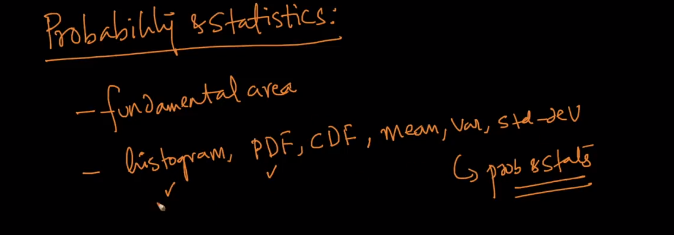 Probability & Statistics:
- fundamental area
- histogram, PDF, CDF, mean, var, std-dev
prob & stats